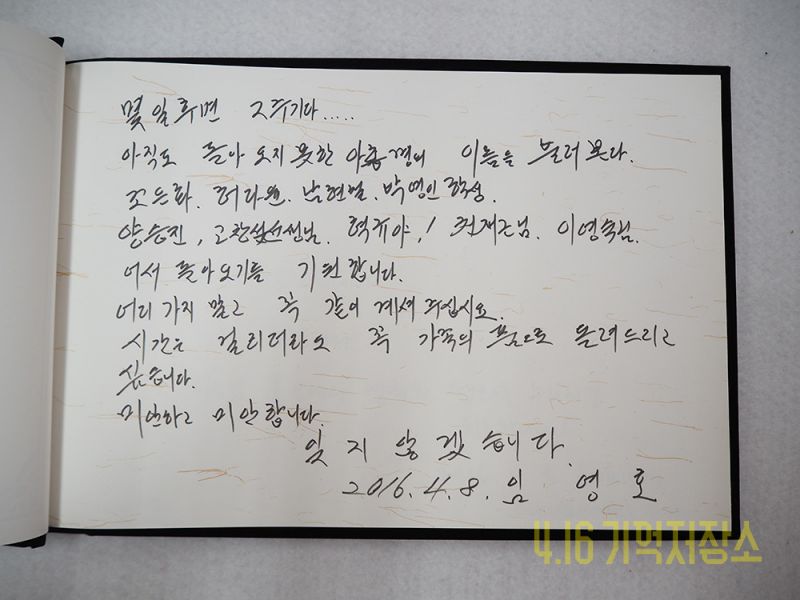 몇일후면 2주기다.....
아직도 돌아오지못한 아홉명의 이름을 불러본다.
조은화. 허다윤. 남현철. 박영인 학생.
양승진, 고창석선생님. 혁규야! 권재근님. 이영숙님.
어서 돌아오기를 기원합니다.
어디 가지 말고 꼭 같이 계셔 주십시요.
시간은 걸리더라도 꼭 가족의 품으로 돌려드리고
싶습니다.
미안하고 미안합니다.
잊지 않겠습니다.
2016.4.8. 임 영 호
4.16 기억저장소